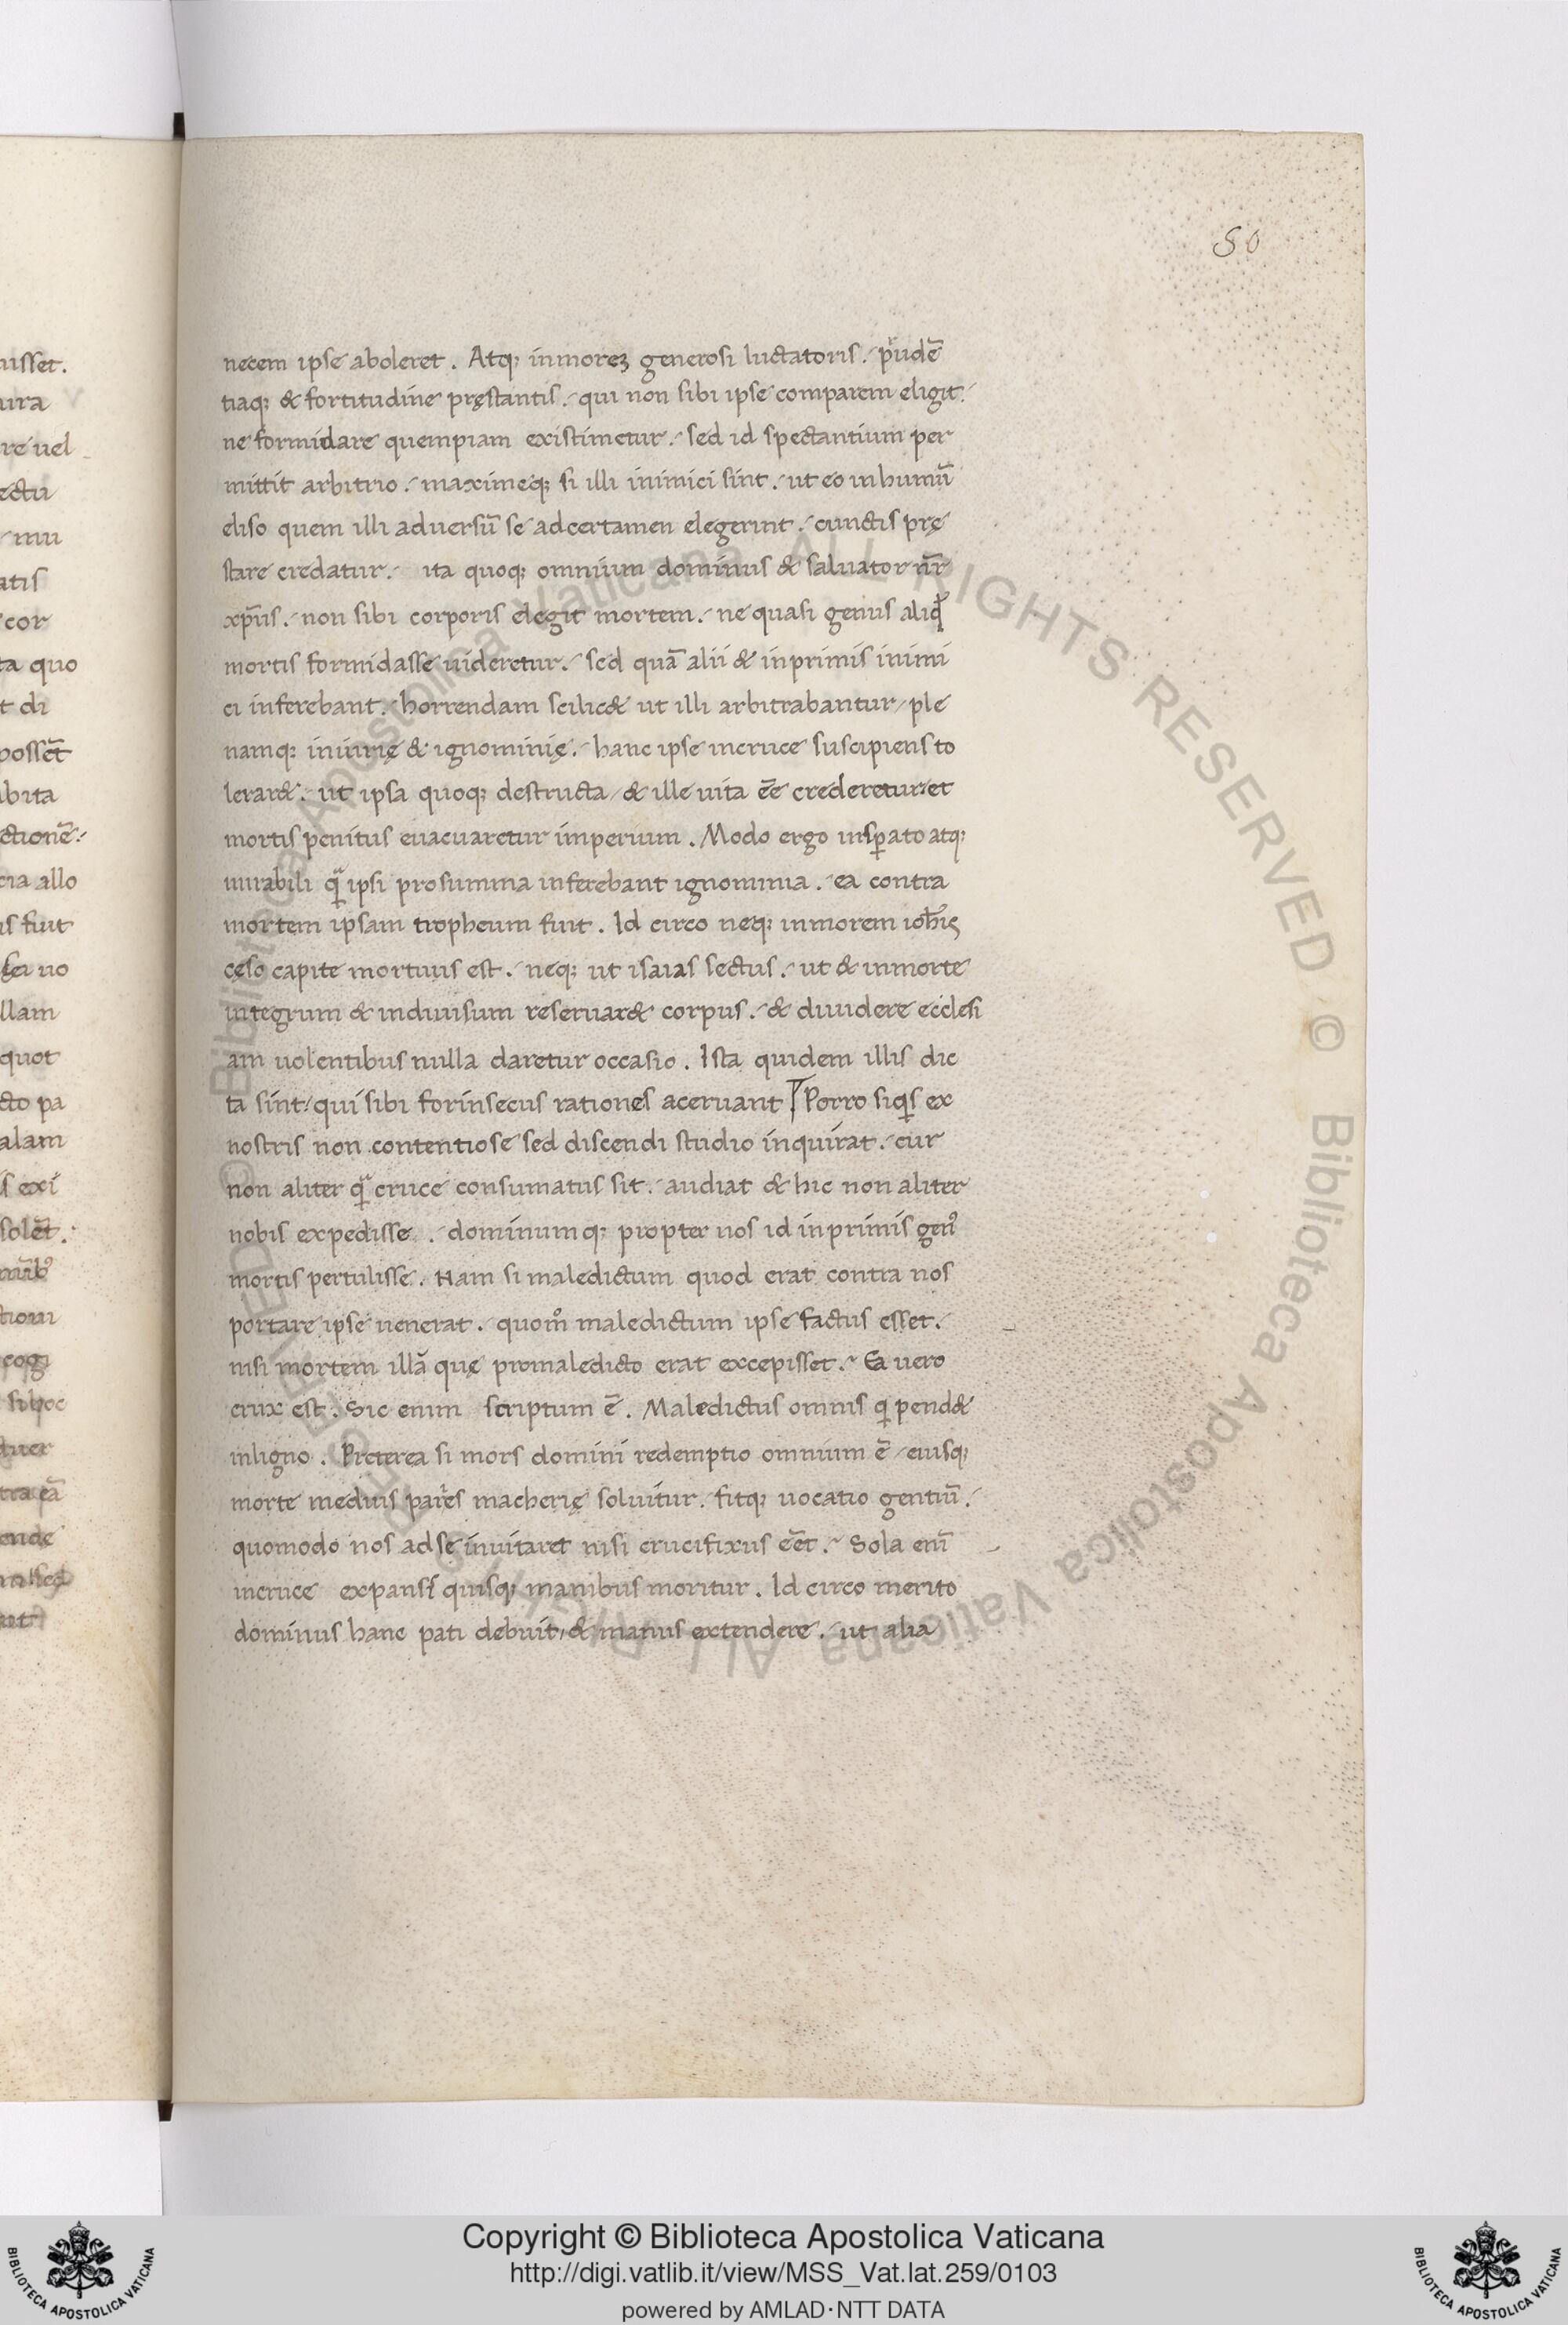 50
necem ipse aboleret. Atq; in morez generosi luctatoris. prudē
tiaq; & fortitudine pręstantis. qui non sibi ipse comparem eligit.
ne formidare quempiam existimetur. sed id spectantium per
mittit arbitrio. maximeq; si illi inimici sint. ut eo in humū
eliso quem illi adversū se ad certamen elegerint. cunctis prę
stare credatur. ita quoq; omnium dominus & salvator nr̄
xp̄us. non sibi corporis elegit mortem. ne quasi genus aliqd
mortis formidasse videretur. sed quā alii & inprimis inimi
ci inferebant. horrendam scilic& ut illi arbitrabantur, ple
namq; iniurię & ignominię. hanc ipse in cruce suscipiens to
lerar&. ut ipsa quoq; destructa, & ille vita eē crederetur et
mortis penitus evacuaretur imperium. Modo ergo insperato atq;
mirabili quā ipsi pro summa inferebant ignominia. ea contra
mortem ipsam tropheum fuit. Id circo neq; in morem ioh̄is
ceso capite mortuus est. neq; ut isaias sectus. ut & in morte
integrum & indivisum reservar& corpus. & dividere ecclesi
am volentibus nulla daretur occasio. Ista quidem illis dic
ta sint. qui sibi forinsecus rationes acervant Porro siqis ex
nostris non contentiose sed discendi studio inquirat. cur
non aliter quā cruce consumatus sit. audiat & hic non aliter
nobis expedisse. dominumq; propter nos id inprimis gen9
mortis pertulisse. Nam si maledictum quod erat contra nos
portare ipse venerat. quom̊ maledictum ipse factus esset.
nisi mortem illā quę pro maledicto erat excepisset. Ea vero
crux est. Sic enim scriptum ē. Maledictus omnis q pend&
in ligno. Preterea si mors domini redemptio omnium ē, eiusq;
morte medius paries macherię solvitur. fitq; vocatio gentiū.
quomodo nos ad se invitaret nisi crucifixus eēt. Sola eni
in cruce expansis quisq; manibus moritur. Id circo merito
dominus hanc pati debuit, & manus extendere. ut alia
© Biblioteca Apostolica Vaticana ALL RIGHTS RESERVED
Copyright © Biblioteca Apostolica Vaticana
http://digi.vatlib.it/view/MSS_Vat.lat.259/0103
powered by AMLAD·NTT DATA
BIBLIOTECA APOSTOLICA VATICANA
BIBLIOTECA APOSTOLICA VATICANA